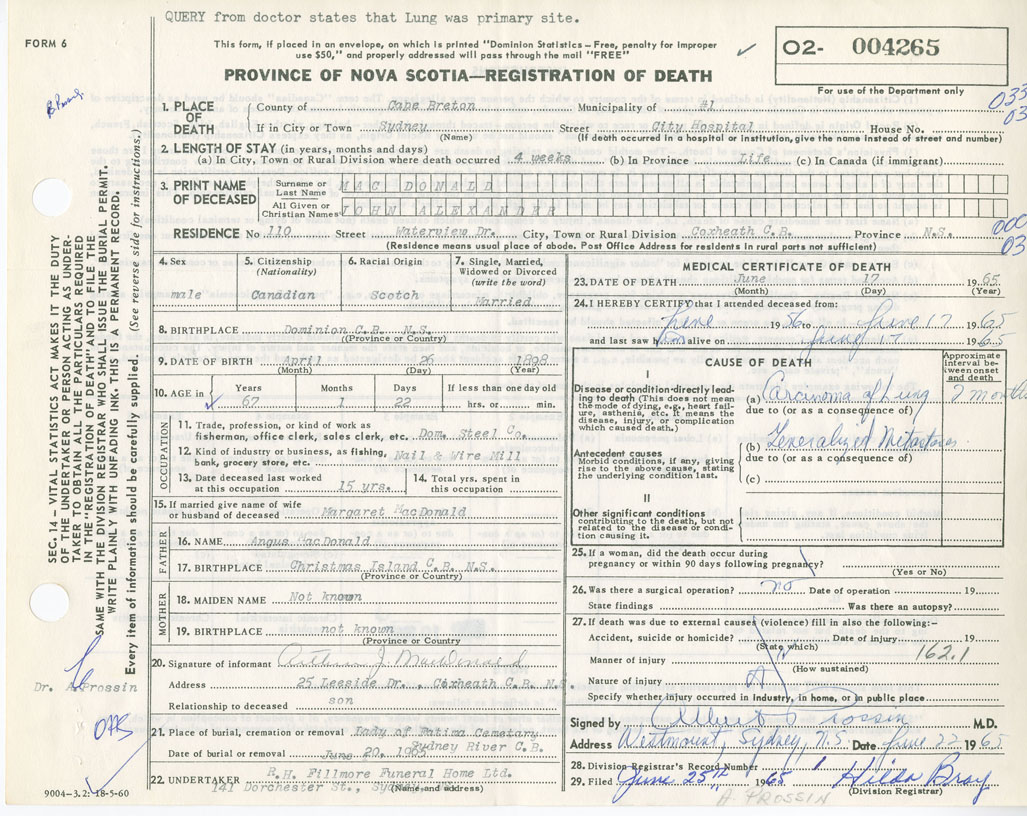 QUERY from doctor states that Lung was primary site.
FORM 6
This form, if placed in an envelope, on which is printed "Dominion Statistics – Free, penalty for improper
use $50," and properly addressed will pass through the mail "FREE"
02- 004265
For use of the Department only
PROVINCE OF NOVA SCOTIA—REGISTRATION OF DEATH
033
03
1. PLACE OF DEATH
County of Cape Breton Municipality of #1
If in City or Town Sydney Street City Hospital House No.
(Name) (If death occurred in a hospital or institution, give the name instead of street and number)
2. LENGTH OF STAY (in years, months and days)
(a) In City, Town or Rural Division where death occurred 4 weeks (b) In Province Life (c) In Canada (if immigrant)
3. PRINT NAME OF DECEASED
Surname or Last Name MAC DONALD
All Given or Christian Names JOHN ALEXANDER
RESIDENCE No 110 Street Waterview Dr. City, Town or Rural Division Coxheath C.B. Province N.S.
(Residence means usual place of abode. Post Office Address for residents in rural parts not sufficient)
000
03
4. Sex
male
5. Citizenship
(Nationality)
Canadian
6. Racial Origin
Scotch
7. Single, Married,
Widowed or Divorced
(write the word)
Married
8. BIRTHPLACE Dominion C.B. N.S.
(Province or Country)
9. DATE OF BIRTH April 26 1898
(Month) (Day) (Year)
10. AGE in
Years Months Days If less than one day old
67 1 22 hrs. or min.
OCCUPATION
11. Trade, profession, or kind of work as
fisherman, office clerk, sales clerk, etc. Dom. Steel Co.
12. Kind of industry or business, as fishing,
bank, grocery store, etc. Nail & Wire Mill
13. Date deceased last worked
at this occupation 15 yrs.
14. Total yrs. spent in
this occupation
15. If married give name of wife
or husband of deceased Margaret MacDonald
FATHER
16. NAME Angus MacDonald
17. BIRTHPLACE Christmas Island C.B. N.S.
(Province or Country)
MOTHER
18. MAIDEN NAME Not known
19. BIRTHPLACE not known
(Province or Country)
20. Signature of informant Arthur J. MacDonald
Address 25 Leeside Dr., Coxheath C.B. N.S.
Relationship to deceased son
21. Place of burial, cremation or removal Lady of Fatima Cemetary
Sydney River C.B.
Date of burial or removal June 20, 1965
22. UNDERTAKER R.H. Fillmore Funeral Home Ltd.
141 Dorchester St.,
(Name and address)
MEDICAL CERTIFICATE OF DEATH
23. DATE OF DEATH June 17 1965
(Month) (Day) (Year)
24. I HEREBY CERTIFY that I attended deceased from:
June 1956 to June 17 1965
and last saw him alive on June 17 1965
CAUSE OF DEATH
Approximate
interval be-
tween onset
and death
I
Disease or condition directly lead-
ing to death (This does not mean
the mode of dying, e.g., heart fail-
ure, asthenia, etc. It means the
disease, injury, or complication
which caused death.)
(a) Carcinoma of Lung 2 months
due to (or as a consequence of)
Antecedent causes
Morbid conditions, if any, giving
rise to the above cause, stating
the underlying condition last.
(b) Generalized Metastases
due to (or as a consequence of)
(c)
II
Other significant conditions
contributing to the death, but not
related to the disease or condi-
tion causing it.
25. If a woman, did the death occur during
pregnancy or within 90 days following pregnancy?
(Yes or No)
26. Was there a surgical operation? no Date of operation 19
State findings Was there an autopsy?
27. If death was due to external causes (violence) fill in also the following:-
Accident, suicide or homicide? Date of injury 19
(State which)
162.1
Manner of injury
(How sustained)
Nature of injury
Specify whether injury occurred in industry, in home, or in public place
Signed by Albert Prossin M.D.
Address Westmount, Sydney, N.S. Date June 22 1965
28. Division Registrar's Record Number
29. Filed June 25th 1965 Hilda Bray
(Division Registrar)
A PROSSIN
SEC. 14 – VITAL STATISTICS ACT MAKES IT THE DUTY
OF THE UNDERTAKER OR PERSON ACTING AS UNDER-
TAKER TO OBTAIN ALL THE PARTICULARS REQUIRED
IN THE "REGISTRATION OF DEATH" AND TO FILE THE
SAME WITH THE DIVISION REGISTRAR WHO SHALL ISSUE THE BURIAL PERMIT.
WRITE PLAINLY WITH UNFADING INK. THIS IS A PERMANENT RECORD.
Every item of information should be carefully supplied. (See reverse side for instructions.)
Dr. A. Prossin
9004-3.2: 18-5-60